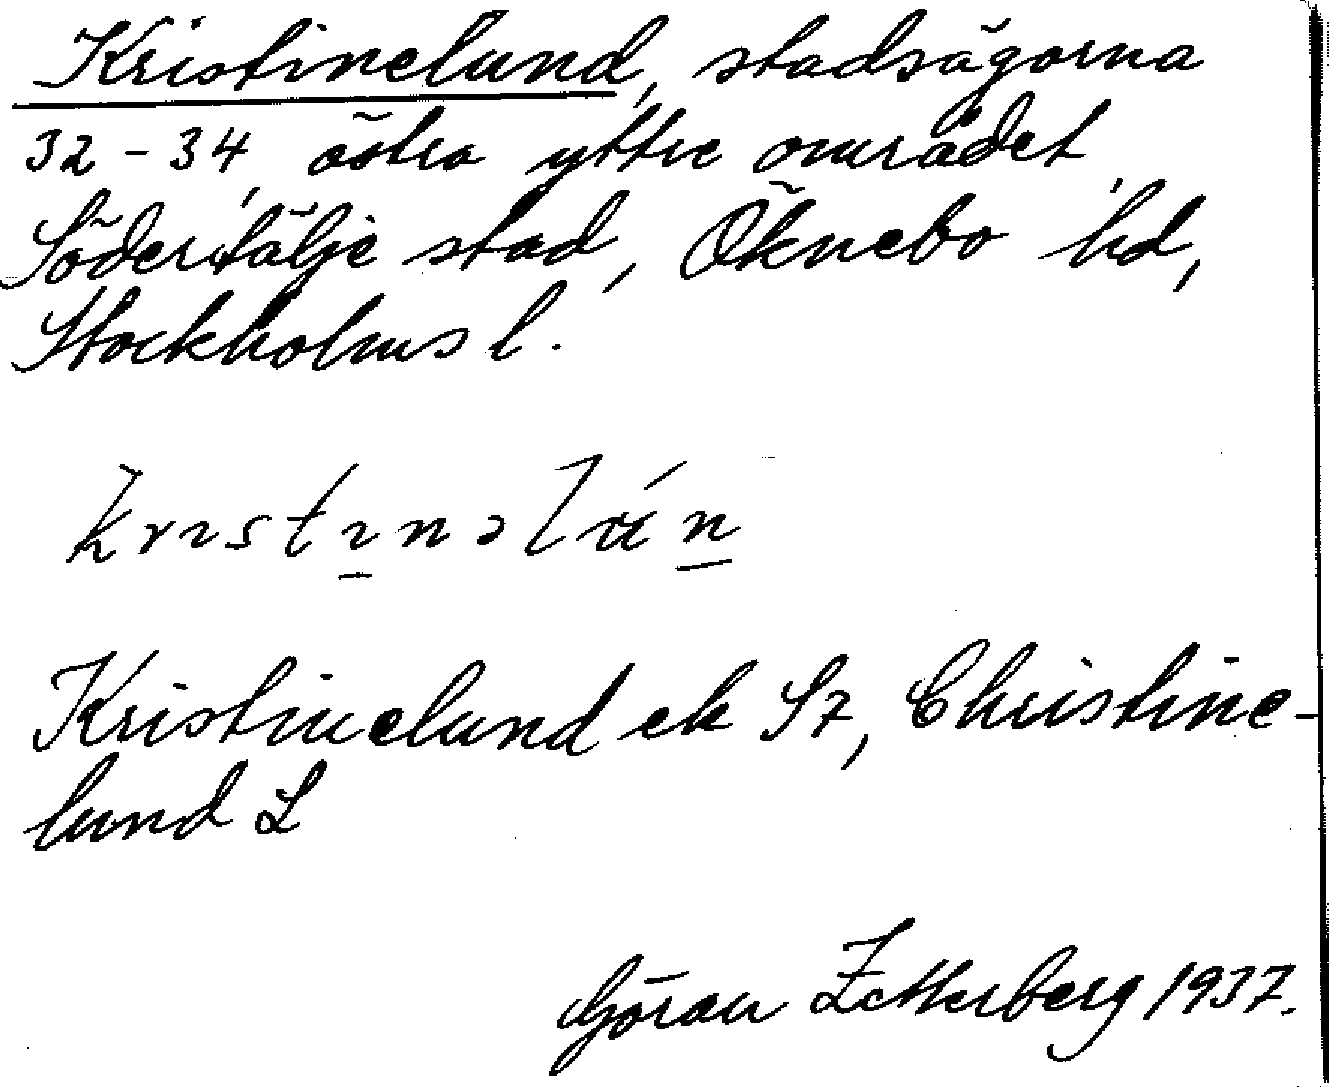 Kristinelund, stadsägorna
32-34, östra yttre området,
Södertälje stad, Öknebo hd,
Stockholms l.
Kristinelund ek Sz, Christine-
lund L
Göran Zetterberg 1937.